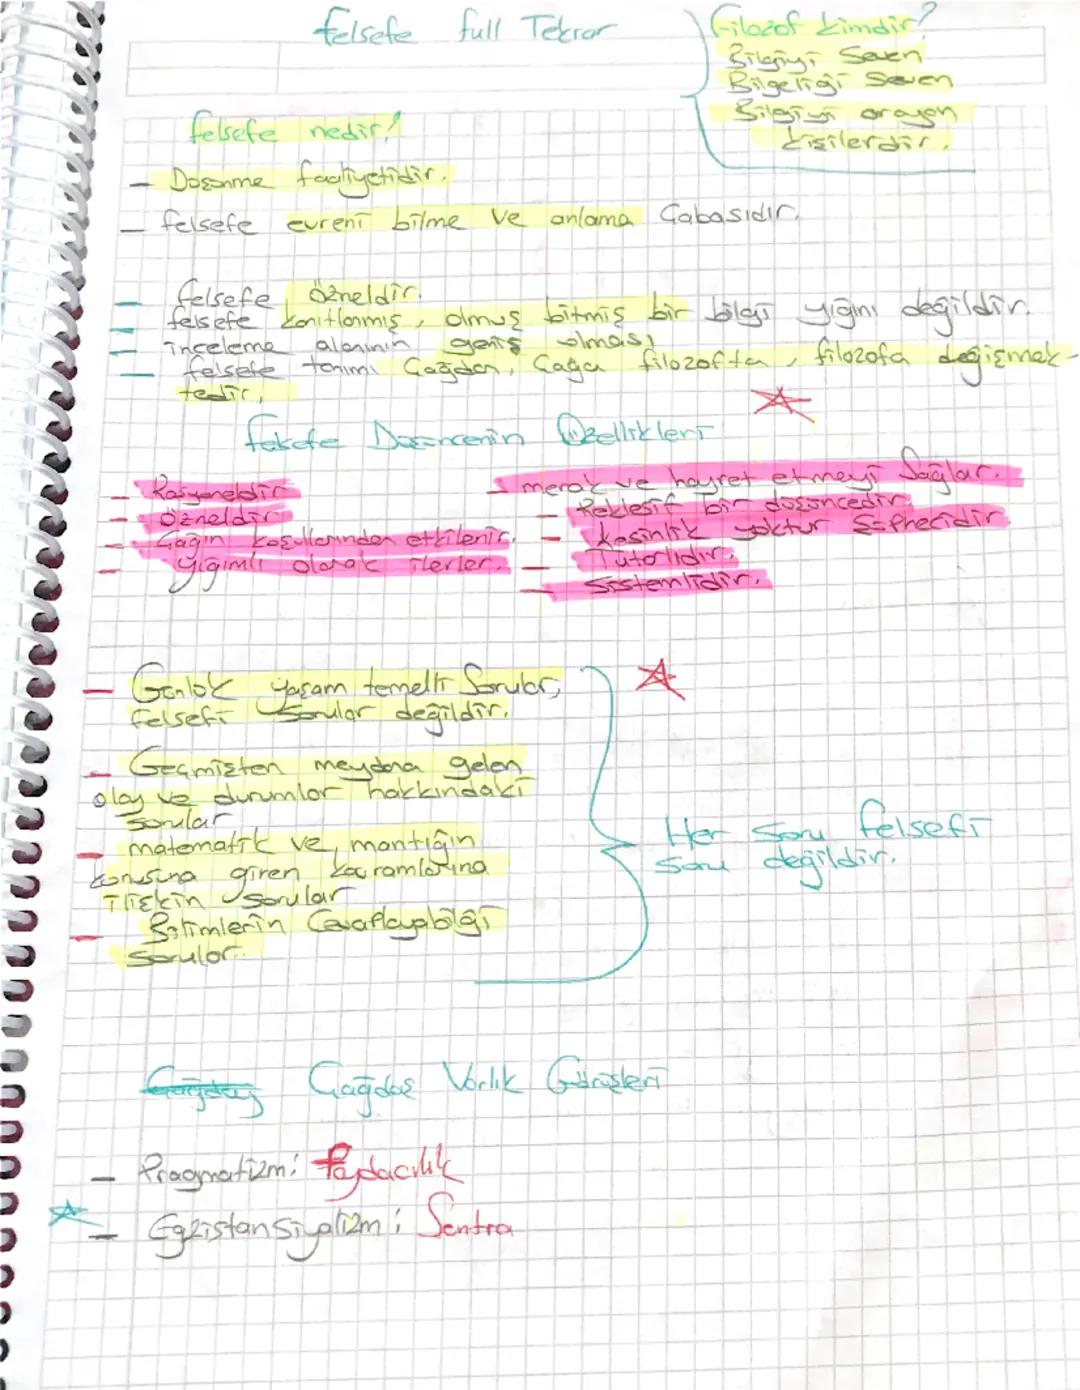 felsefe full Tekrar
Filozof kimdir?
Bilgiyi Seven
Bilgeliği Seven
Bilgiyi arayan
kişilerdir.
felsefe nedir?
- Düşünme faaliyetidir.
- felsefe evreni bilme ve anlama Çabasıdır.
- felsefe özneldir.
- felsefe kanıtlanmış, olmuş bitmiş bir bilgi yığını değildir.
- inceleme alanının geniş olması
- felsefe tanımı Çağdan, Çağa filozofta, filozofa değişmek-
tedir.
felsefe Düşüncenin Özellikleri
- Rasyoneldir
- Özneldir
- Çağın koşullarından etkilenir.
- Yığımlı olarak ilerler.
- merak ve hayret etmeyi Sağlar.
- Reklesif bir düşüncedir
- kesinlik yoktur Şüphecidir
- Tutarlıdır.
- Sistemlidir.
- Günlük yaşam temelli Sorular,
felsefi Sorular değildir.
- Geçmişten meydana gelen
olay ve durumlar hakkındaki
sorular
- matematik ve mantığın
konusuna giren kavramlarına
ilişkin sorular
- Bilimlerin Cevaplayabilği
sorular.
Her Soru felsefi
Soru değildir.
Çağdaş Çağdaş Varlık Görüşleri
- Pragmatizm: faydacılık
- Egzistansiyalizm: Sentra